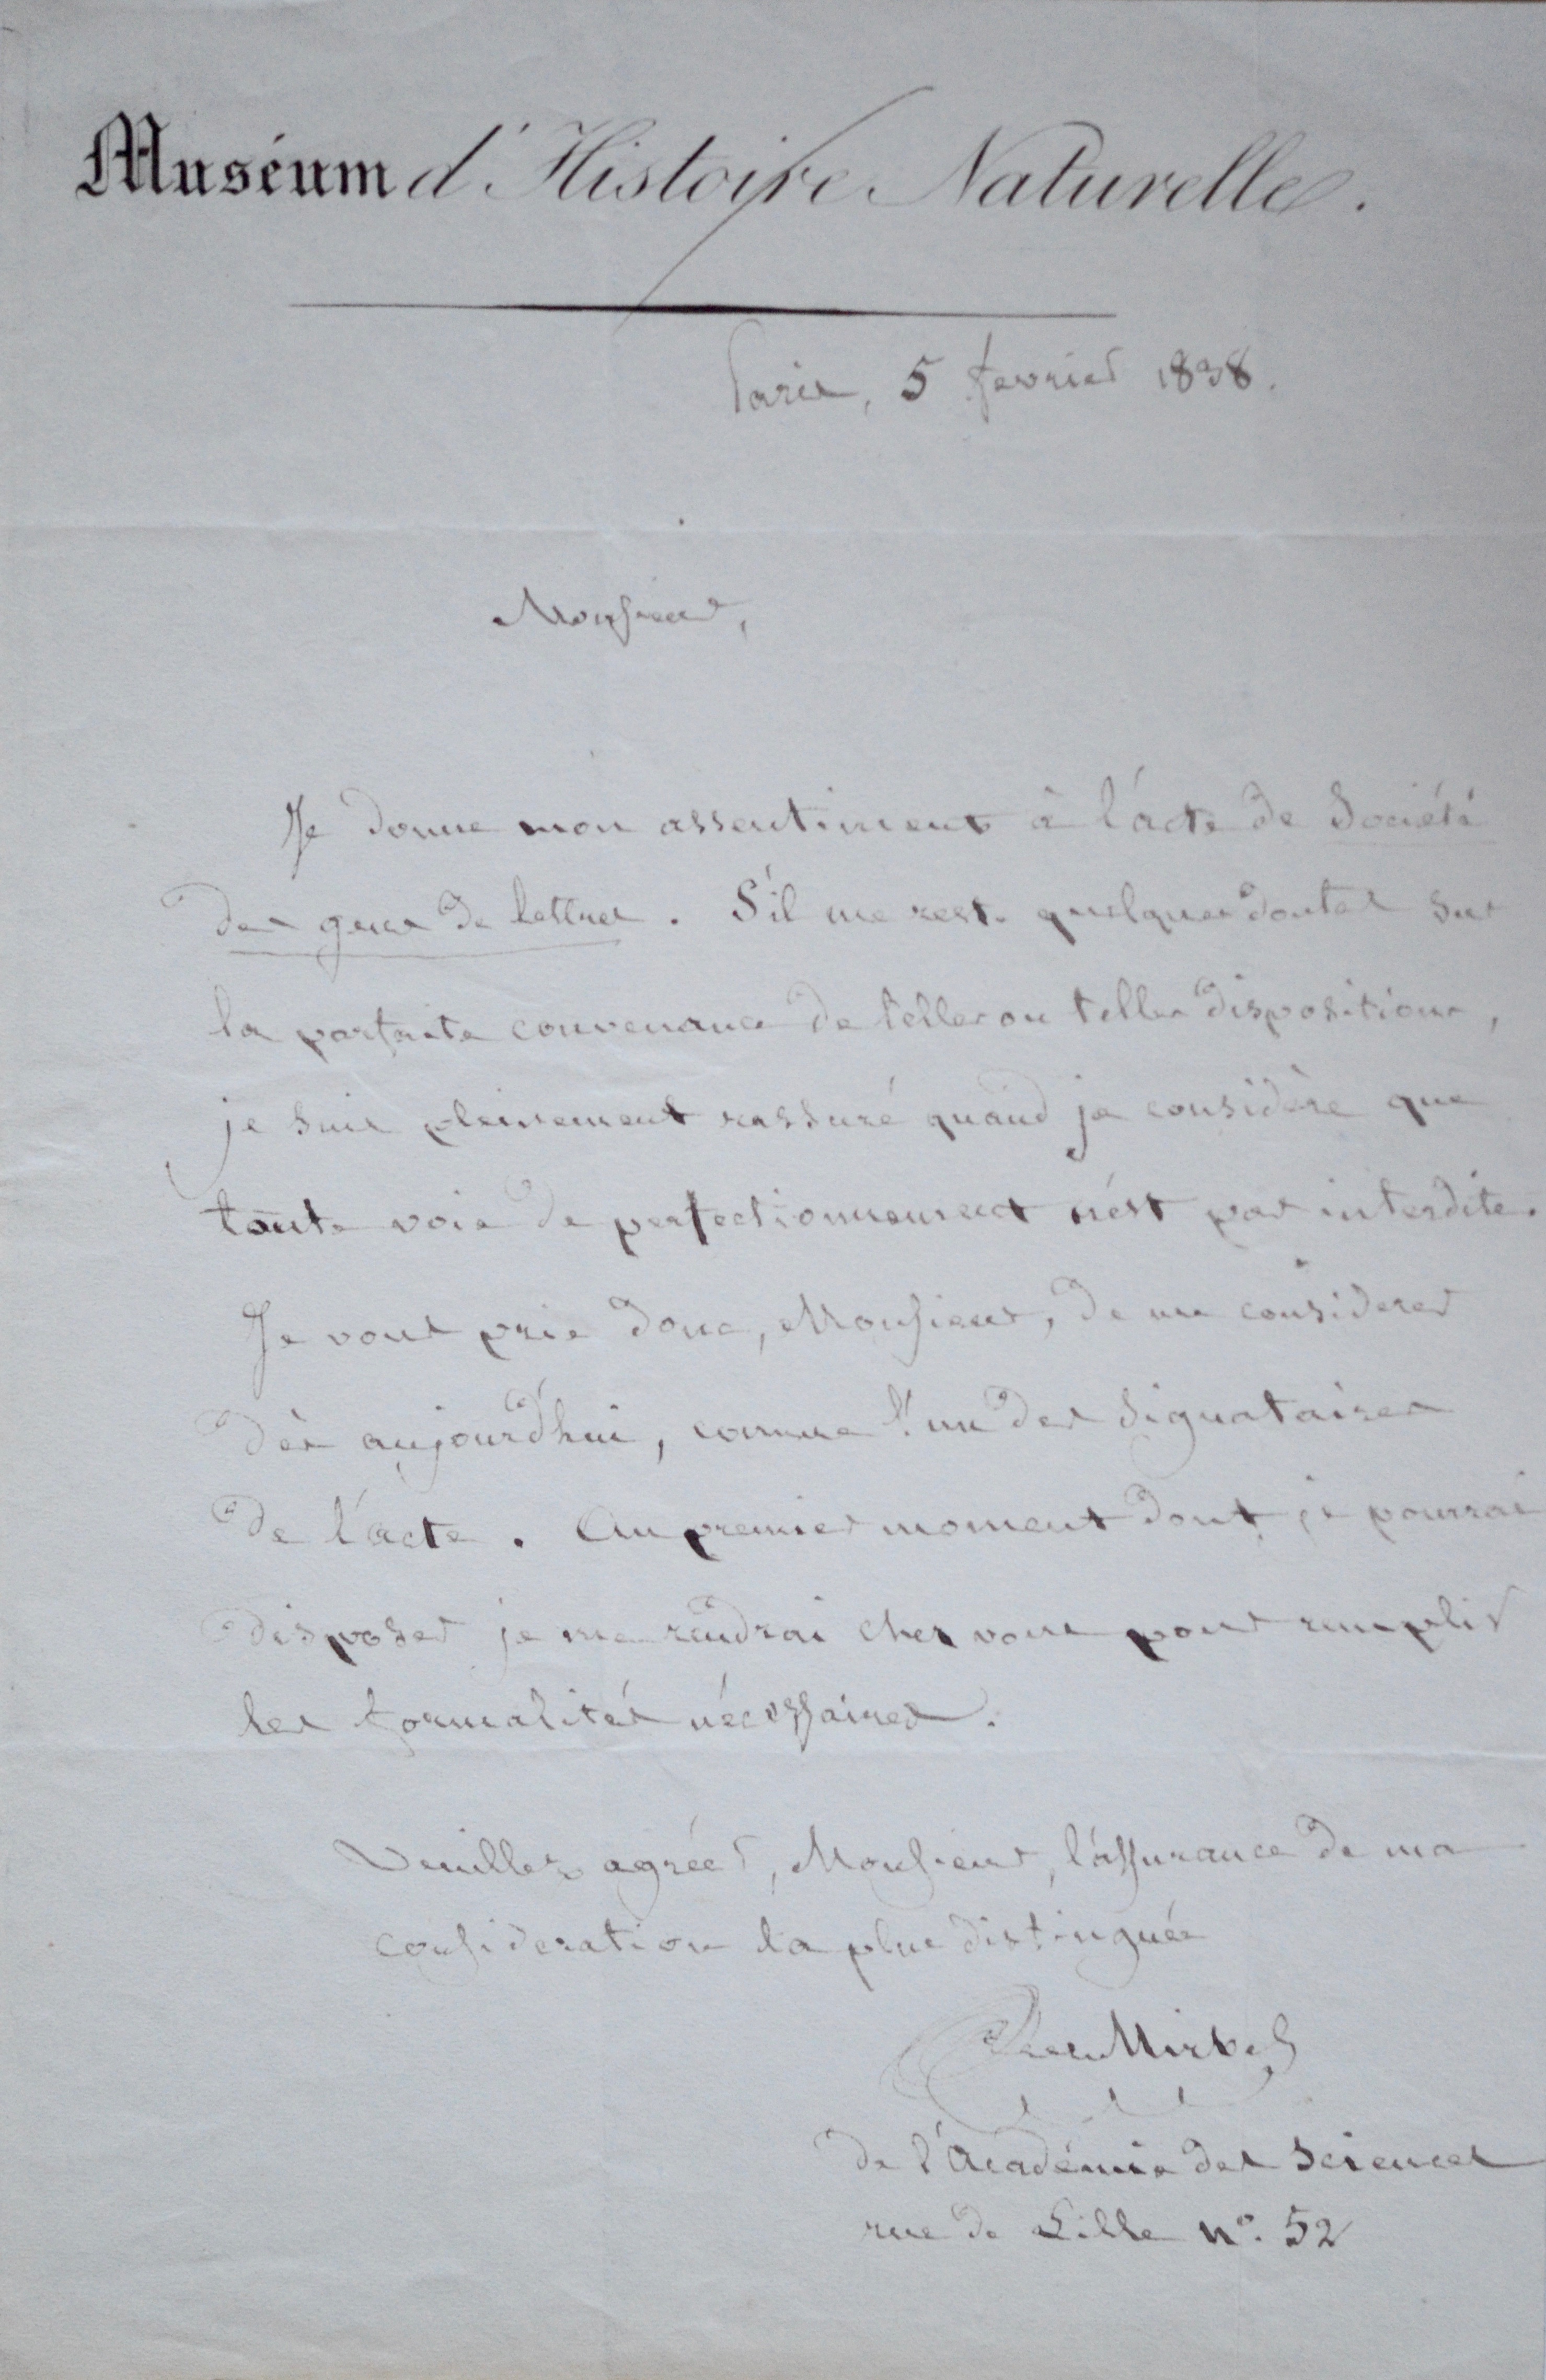 Muséum d'Histoire Naturelle.
Paris, 5 fevrier 1838.
Monsieur,
Je donne mon assentiment à l'acte de Société
des gens de lettres. S'il me reste quelques doutes sur
la parfaite convenance de telles ou telles dispositions,
je suis pleinement rassuré quand je considère que
toute voie de perfectionnement n'est pas interdite.
Je vous prie donc, Monsieur, de me considerer
dès aujourd'hui, comme l'un des signataires
de l'acte. Au premier moment dont je pourrai
disposer je me rendrai chez vous pour remplir
les formalités nécessaires.
Veuillez agréer, Monsieur, l'assurance de ma
consideration la plus distinguée
Mirbel
de l'Académie des Sciences
rue de Lille n°. 52